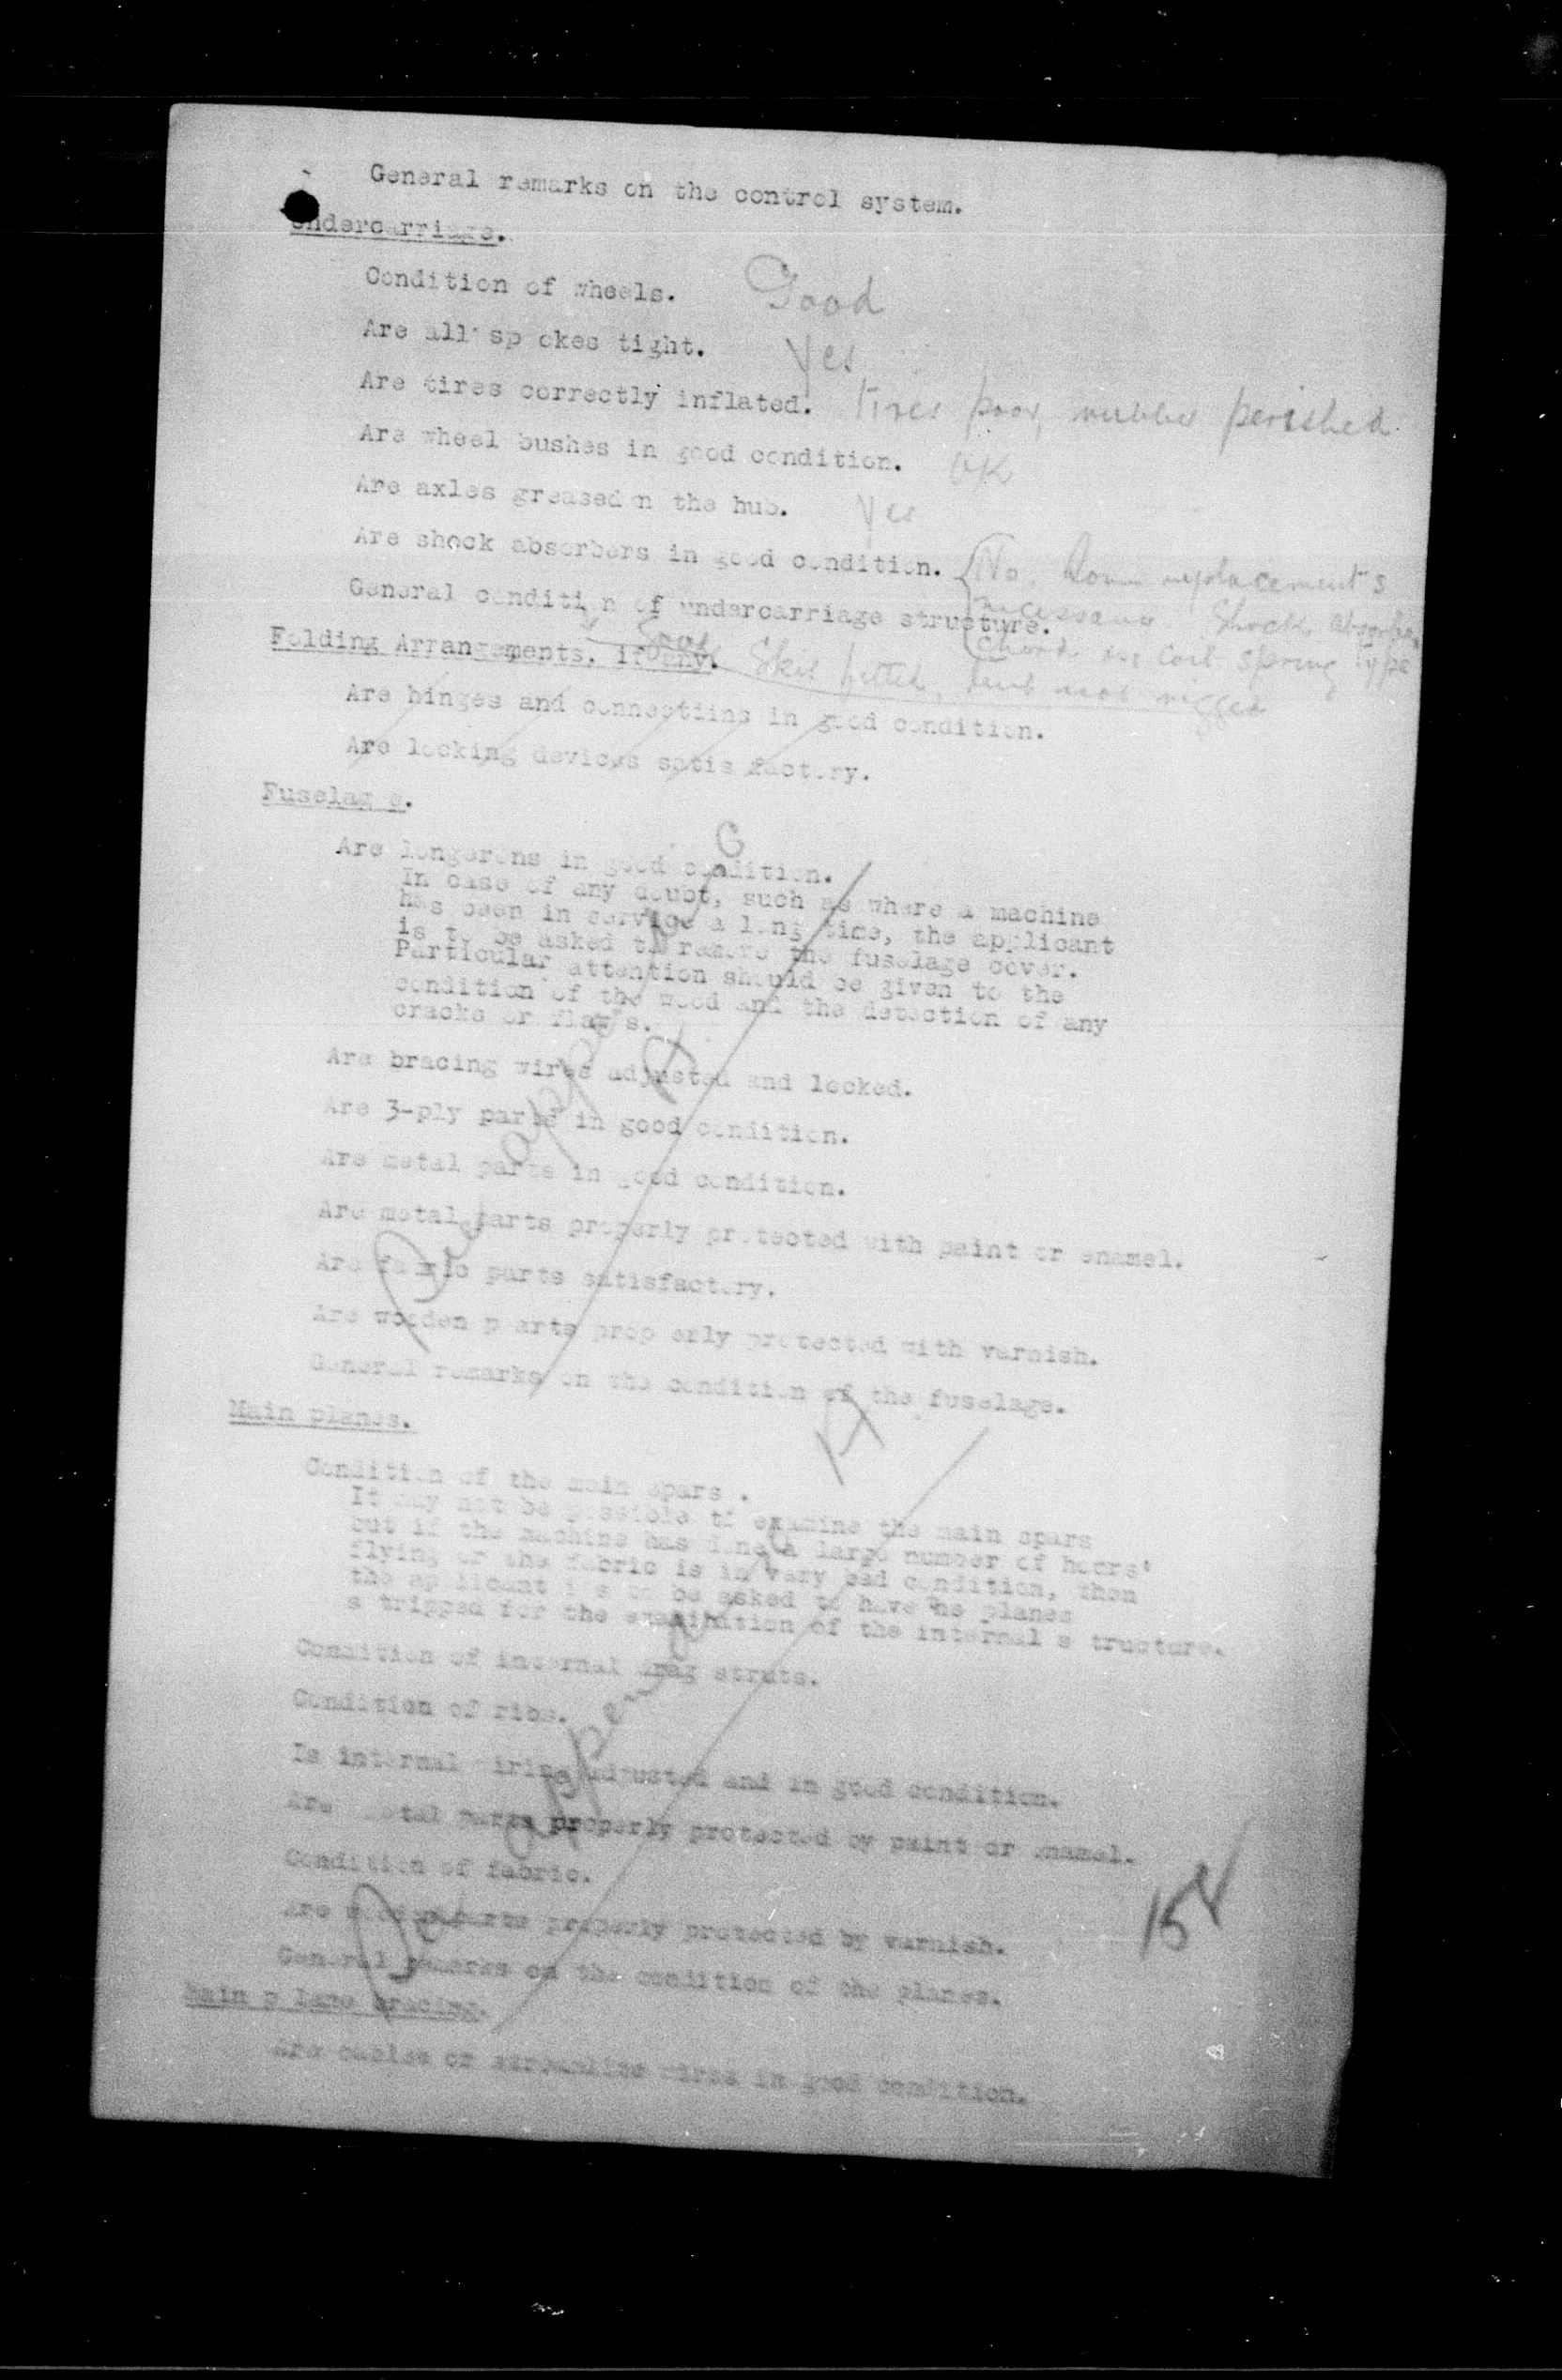 General remarks on the control system.
Undercarriage.
Condition of wheels. Good
Are all sp okes tight. Yes
Are tires correctly inflated. Tires poor, rubber perished
Are wheel bushes in good condition. OK
Are axles greased n the hub. Yes
Are shock absorbers in good condition. No. Some replacements
necessary. Shock absorber
General condition of undercarriage structure.
coil spring type
Good Skis fitted, but not rigged
Folding Arrangements, if any.
Are hinges and connectiins in good condition.
Are locking devices satis factory.
Fuselag e.
Are longerons in good condition.
In case of any doubt, such as where a machine
has been in service a long time, the applicant
is to be asked to remove the fuselage cover.
Particular attention should be given to the
condition of the wood and the detection of any
cracks or flaw s.
Are bracing wires adjusted and locked.
Are 3-ply parts in good condition.
Are metal parts in good condition.
Are metal parts properly protected with paint or enamel.
Are fabric parts satisfactory.
Are wooden p arts prop erly protected with varnish.
General remarks on the condition of the fuselage.
Main planes.
Condition of the main spars .
It may not be possible to examine the main spars
but if the machine has done a large number of hours'
flying or the fabric is in very bad condition, then
the ap licant i s to be asked to have the planes
s tripped for the examination of the internal s tructure.
Condition of internal drag struts.
Condition of ribs.
Is internal wiring adjusted and in good condition.
Are metal parts properly protected by paint or enamel.
Condition of fabric.
Are parts properly protected by varnish.
General remarks on the condition of the planes.
158
Main p lane bracing.
Are cables or streamline wires in good condition.